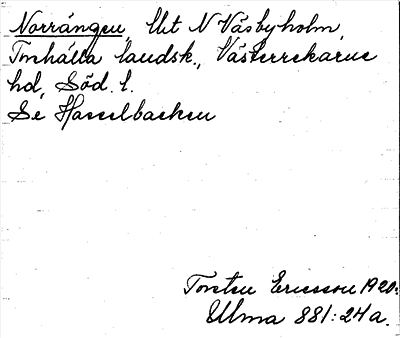 Norrängen, Utt N Väsbyholm,
Tumbåtsa landsk., Västerrekarne
hd, Söd. l.
Se Hasselbacken
Torsten Ericsson 1920.
Ulma 881:24a.